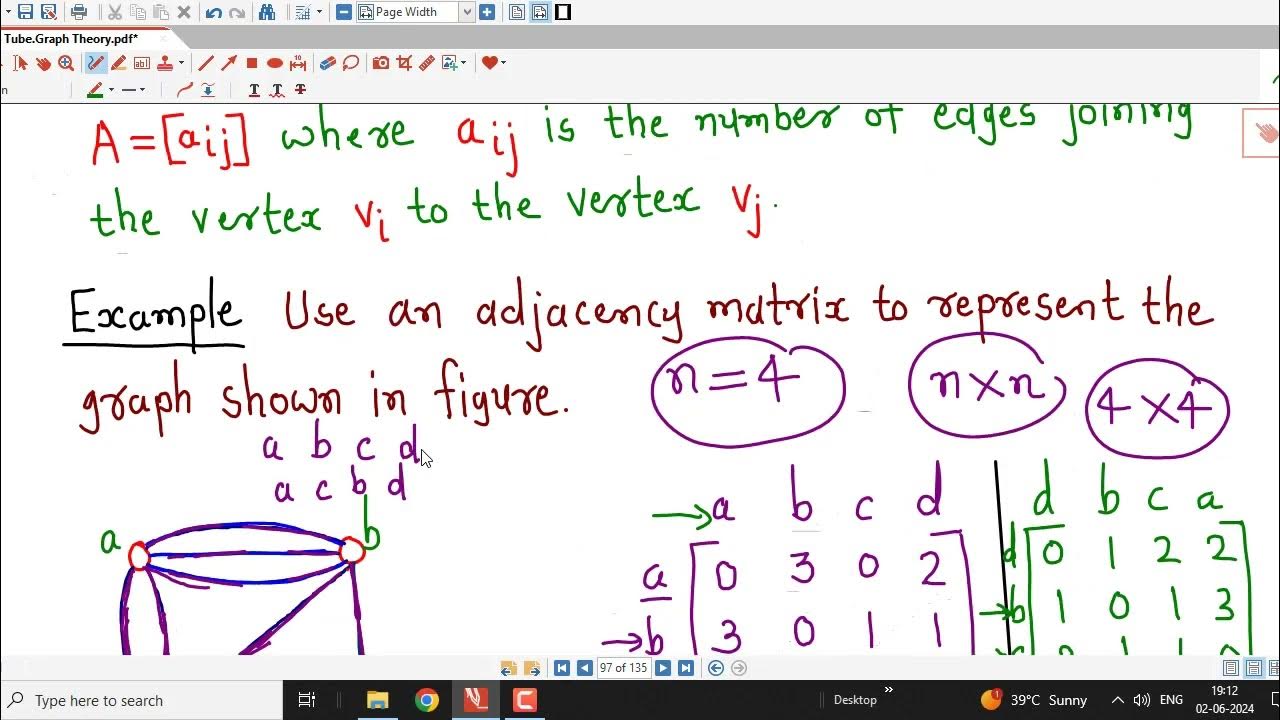 Page Width
Tube.Graph Theory.pdf*
A = [aij] where aij is the number of edges joining
the vertex vi to the vertex vj.
Example Use an adjacency matrix to represent the
graph shown in figure.
n = 4
n × n
4 × 4
a b c d
a c b d
a b
→ a b c d
a 0 3 0 2
→ b 3 0 1 1
d b c a
d 0 1 2 2
→ b 1 0 1 3
97 of 135
Type here to search
Desktop
39°C Sunny
ENG
19:12
02-06-2024